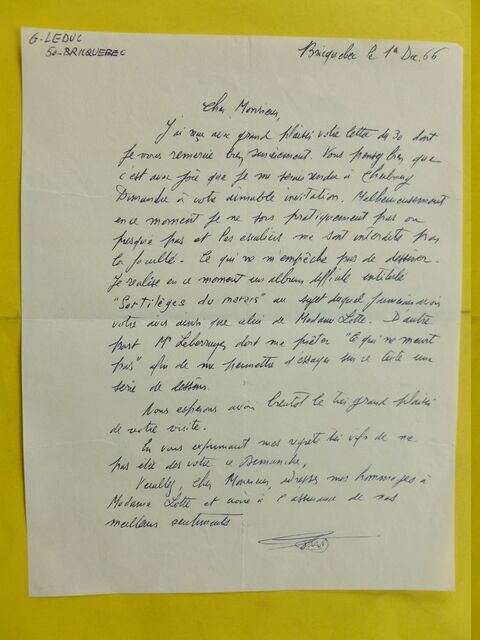 G. LEDUC
50-BRICQUEBEC
Bricquebec le 1er Dec. 66
Cher Monsieur,
J'ai reçu avec grand plaisir votre lettre du 30 dont
je vous remercie bien sincèrement. Vous pensez bien que
c'est avec joie que je me serais rendu à Cherbourg
Dimanche à votre aimable invitation. Malheureusement
en ce moment je ne sors pratiquement pas ou
presque pas et les escaliers me sont interdits par
la faculté. Ce qui ne m'empêche pas de dessiner.
Je réalise en ce moment un album difficile intitulé
"Sortilèges du marais" au sujet duquel j'aimerais avoir
votre avis ainsi que celui de Madame Lotte. D'autre
part Mr doit me prêter "Ce qui ne meurt
pas" afin de me permettre d'essayer sur ce texte une
série de dessins.
Nous espérons avoir bientôt le très grand plaisir
de votre visite.
En vous exprimant mes regrets très vifs de ne
pas être des votres ce Dimanche,
Veuillez, cher Monsieur, adresser mes hommages à
Madame Lotte et croire à l'assurance de nos
meilleurs sentiments